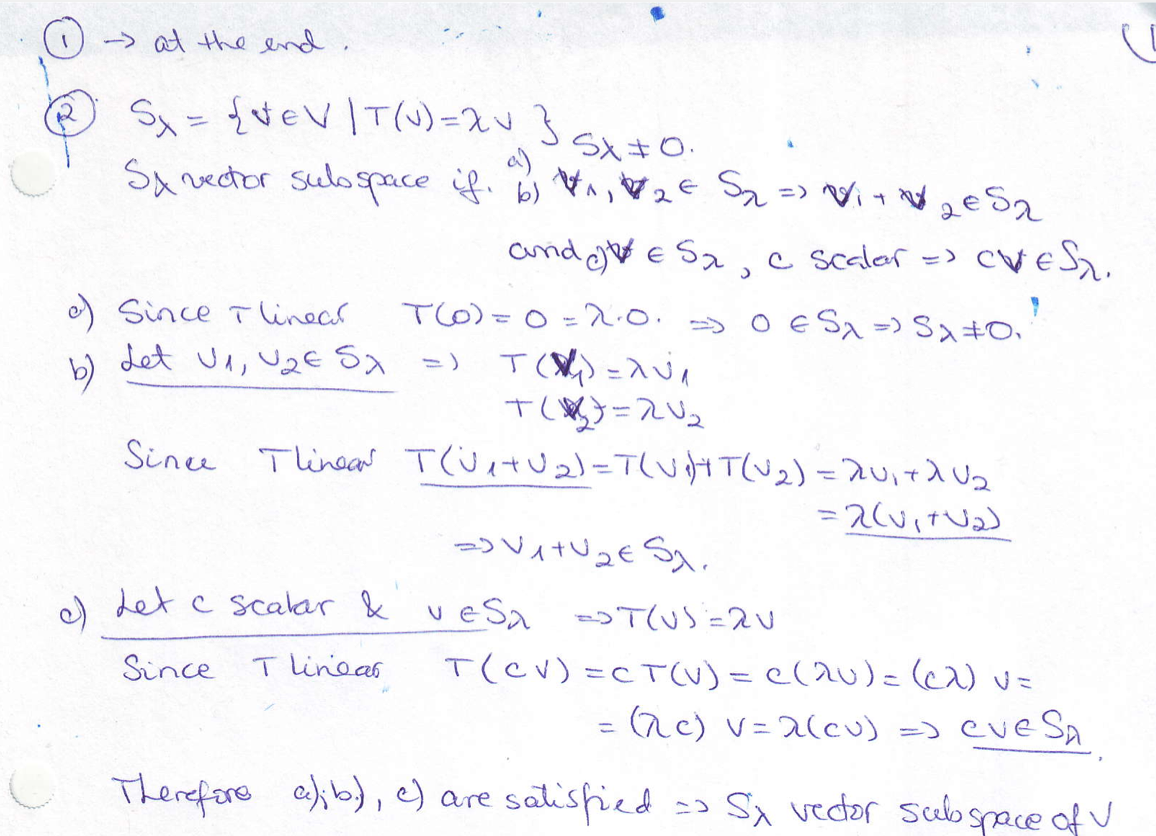 ① → at the end.
② Sλ = {v ∈ V | T(v) = λv}
Sλ vector subspace if. a) Sλ ≠ 0.
b) v1, v2 ∈ Sλ => v1 + v2 ∈ Sλ
and c) v ∈ Sλ, c scalar => cv ∈ Sλ.
a) Since T linear T(0) = 0 = λ·0. => 0 ∈ Sλ => Sλ ≠ 0.
b) Let v1, v2 ∈ Sλ => T(v1) = λv1
T(v2) = λv2
Since T linear T(v1+v2) = T(v1) + T(v2) = λv1 + λv2
= λ(v1+v2)
=> v1+v2 ∈ Sλ.
c) Let c scalar & v ∈ Sλ => T(v) = λv
Since T linear T(cv) = cT(v) = c(λv) = (cλ) v =
= (λc) v = λ(cv) => cv ∈ Sλ.
Therefore a), b), c) are satisfied => Sλ vector subspace of V